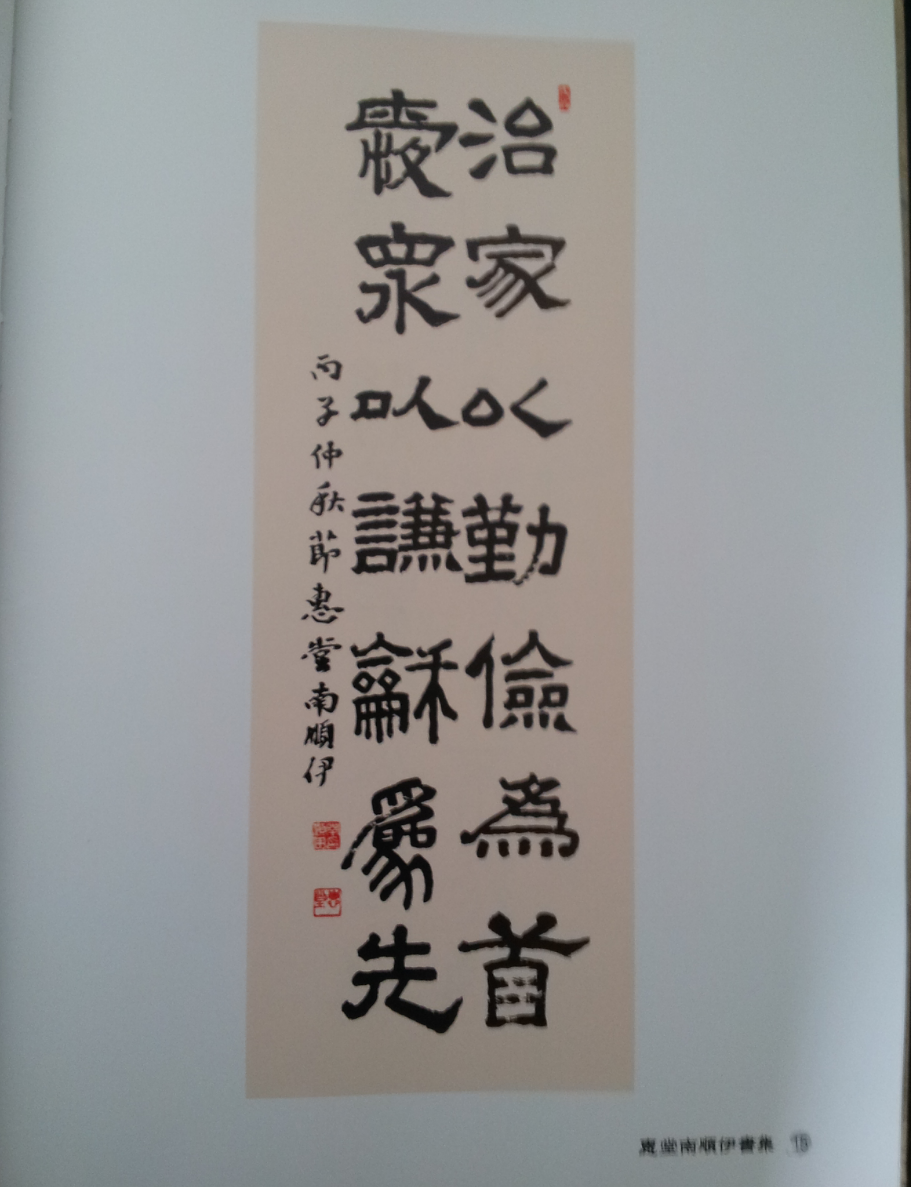 治家以勤儉為首
處衆以謙龢爲先
丙子仲秋節惠堂南順伊
惠堂南順伊書集 15